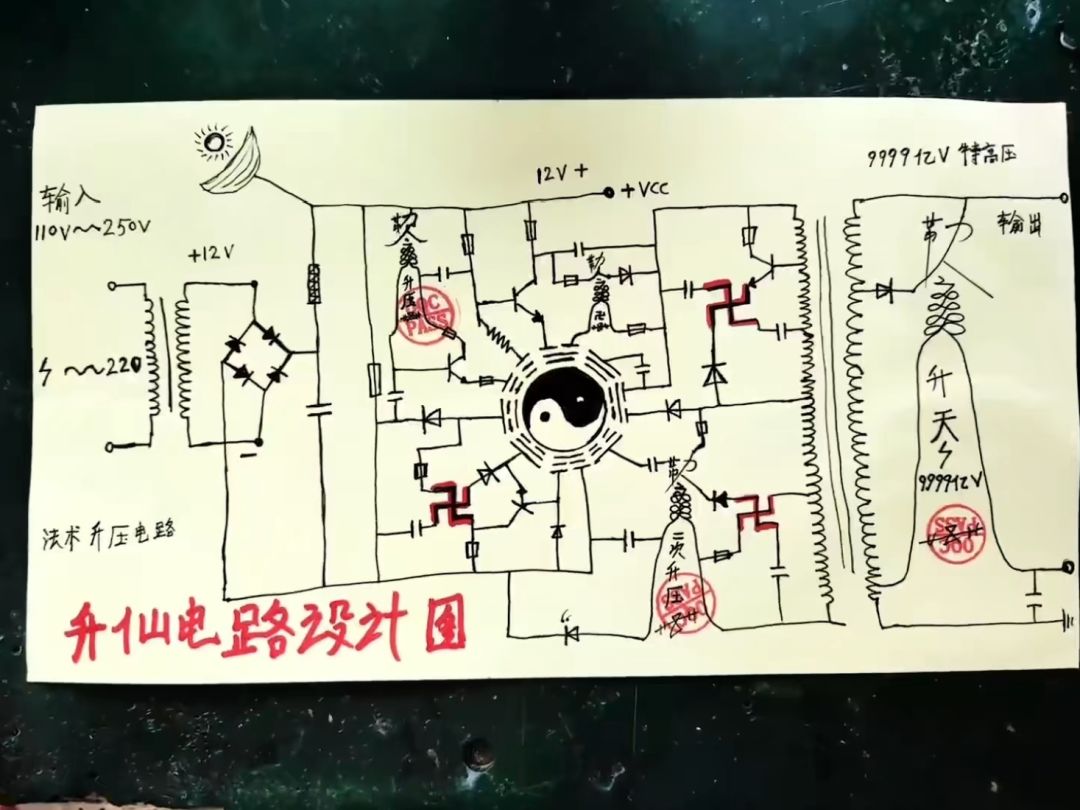 9999亿V 特高压
12V +
+VCC
输入
110V～250V
输出
+12V
升压
QC
PASS
～220
升天
9999亿V
法术升压电路
二次升压
升仙电路设计图